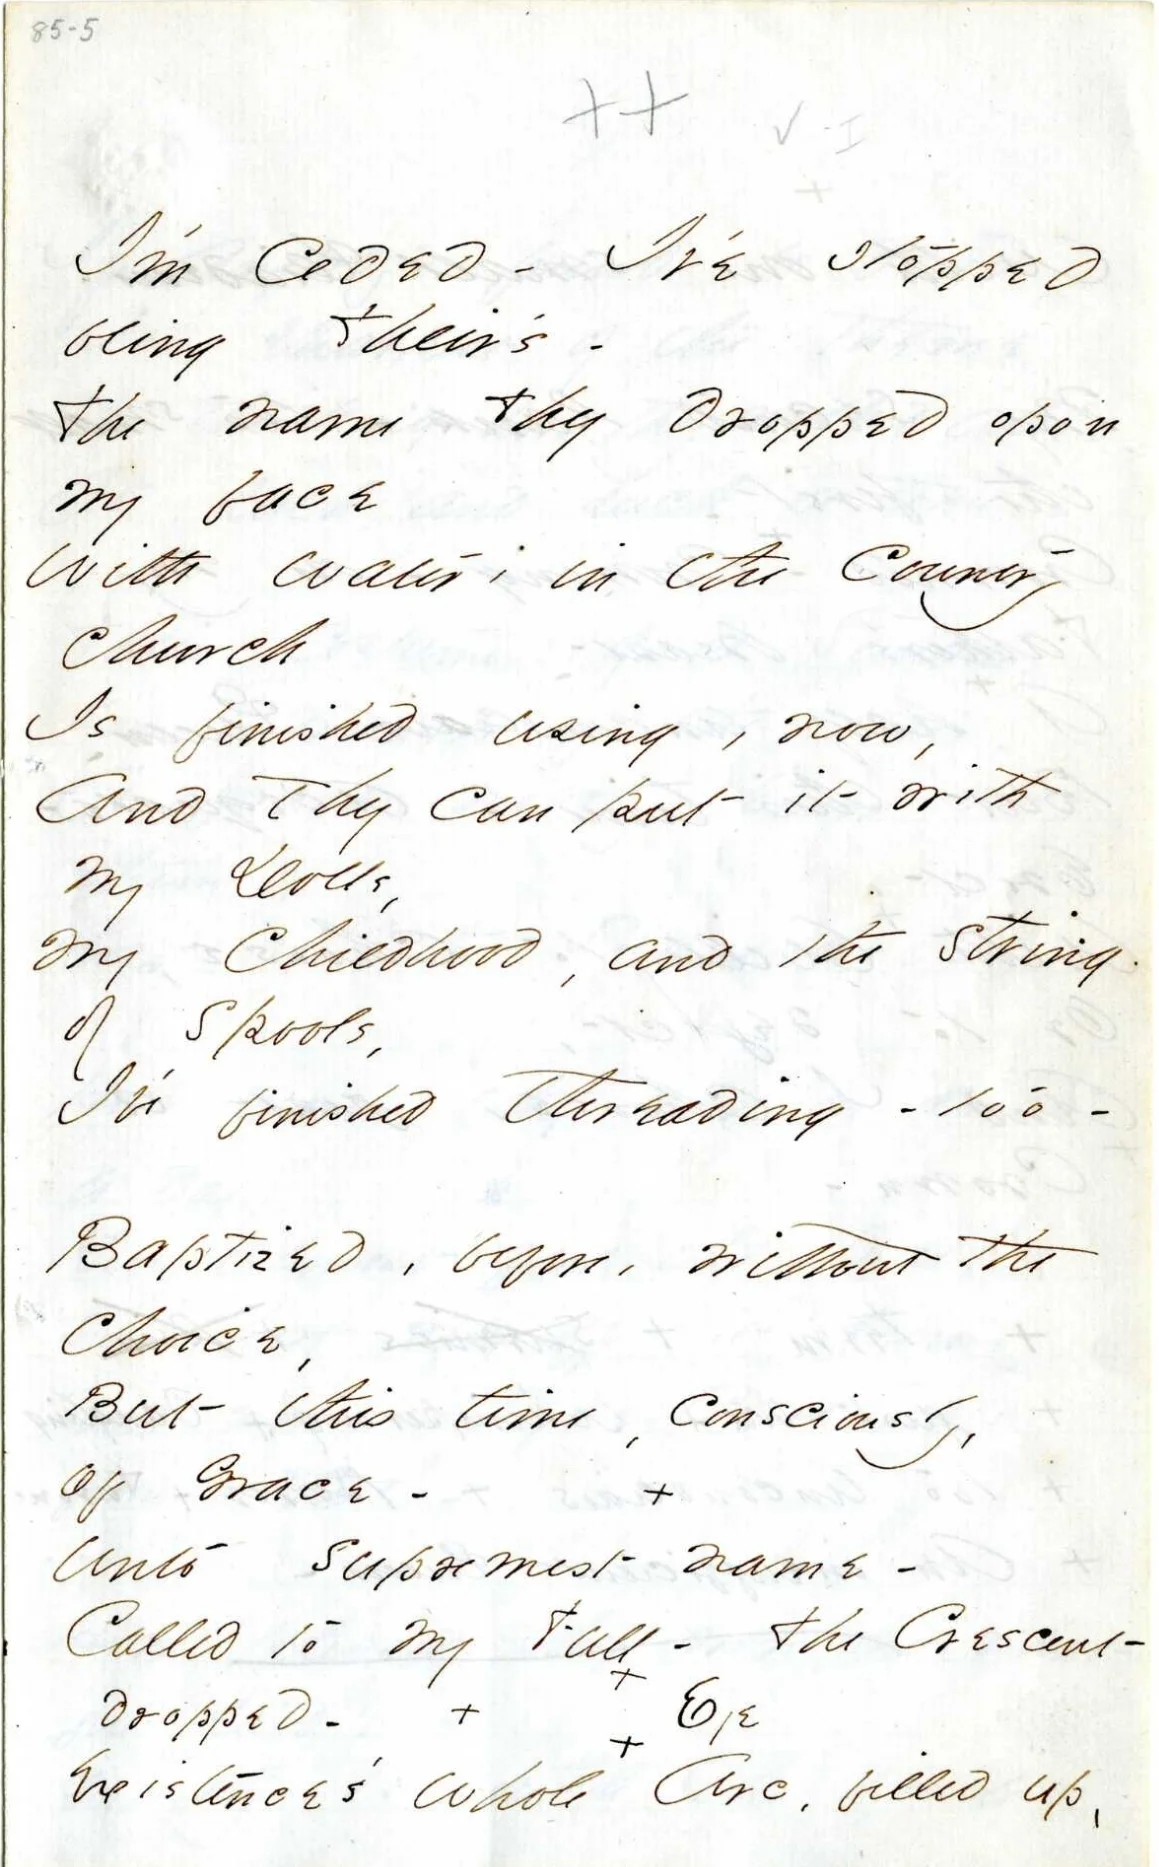 85-5
++
I'm ceded - I've stopped
being Their's -
The name They dropped opon
my face
With water, in the Country
church
Is finished using, now,
And They can put it with
my Dolls,
My childhood, and the string
of spools,
I've finished threading - too -
Baptized, before, without the
choice,
But this time, consciously,
Of Grace - +
Unto supremest name -
Called to my Full - The Crescent
dropped - + + Eye
+
Existence's whole Arc, filled up,